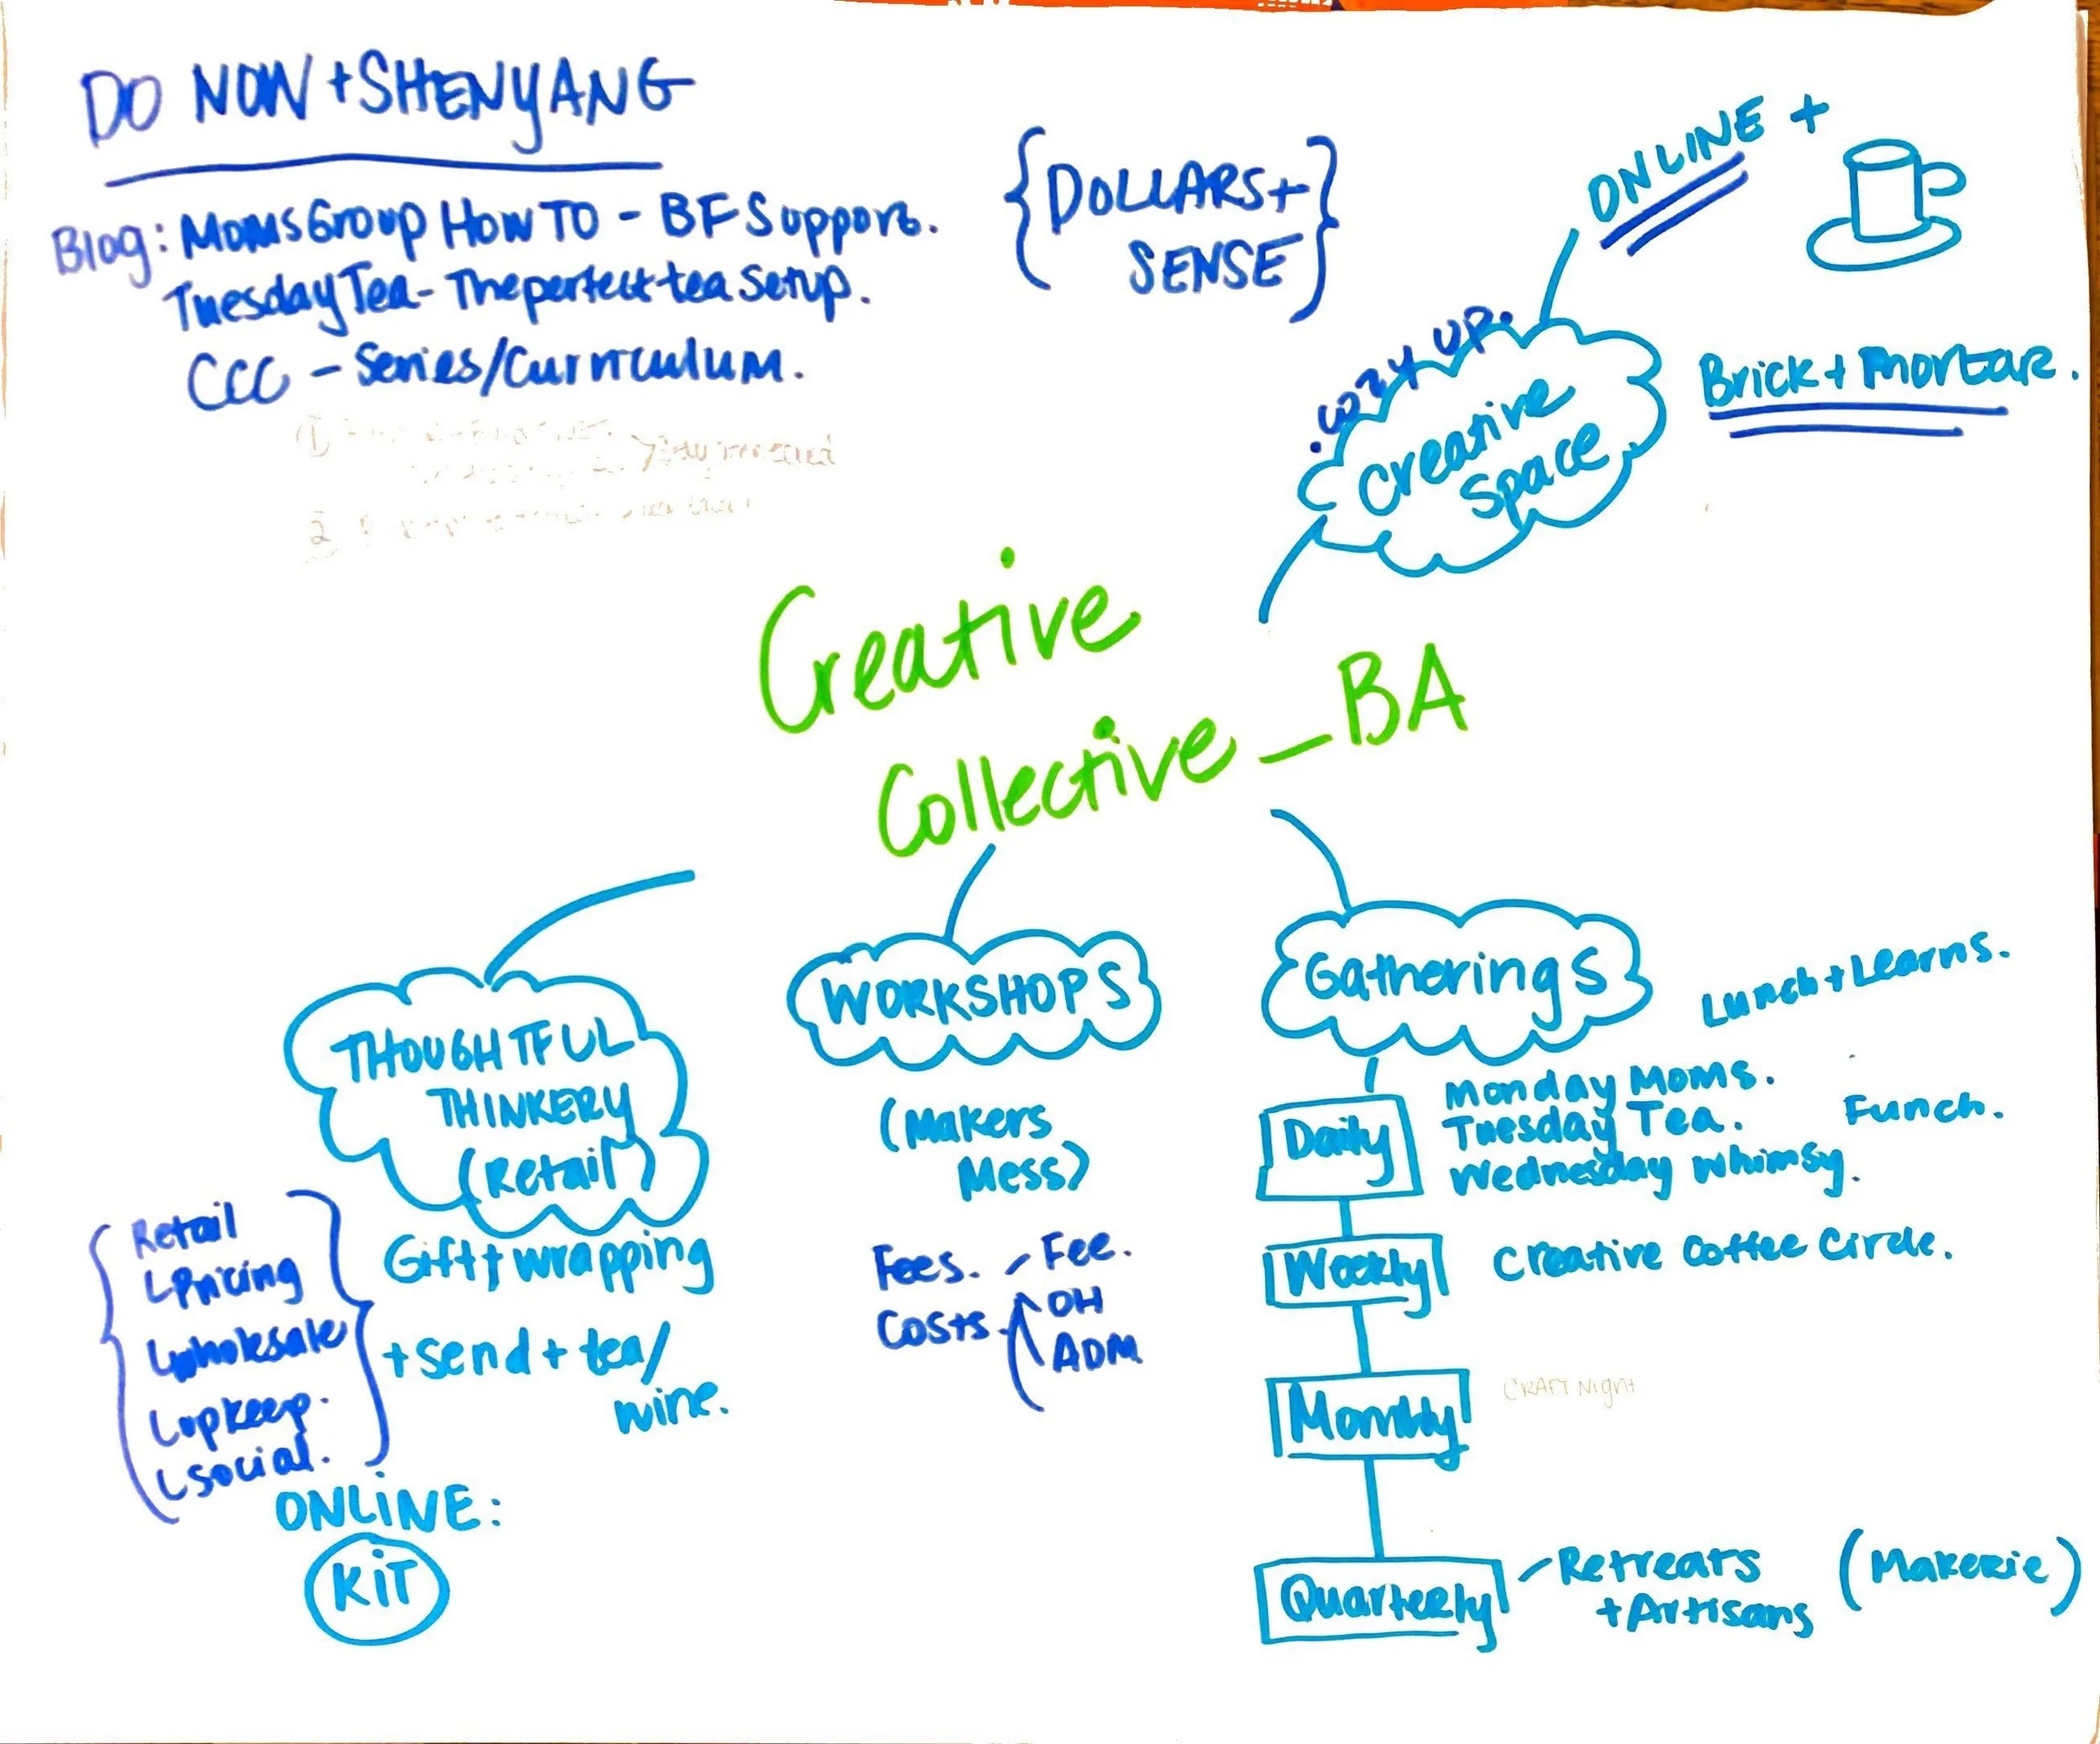 DO NOW + SHENYANG
Blog: Moms Group HOW TO - BF Support.
Tuesday Tea - The perfect tea setup.
CCC - Series/Curriculum.
{DOLLARS +
SENSE}
ONLINE +
.cozy up.
Creative
Space
Brick + mortar.
Creative
Collective _ BA
THOUGHTFUL
THINKERY
(Retail)
Retail
Pricing
wholesale
upkeep.
social.
Gift + wrapping
+ send + tea/
wine.
ONLINE:
KIT
WORKSHOPS
(Makers
Mess)
Fees. - Fee.
Costs. OH
ADM
Gatherings
Lunch + Learns.
Funch.
Daily
Monday Moms.
Tuesday Tea.
Wednesday Whimsy.
Weekly
Creative Coffee Circle.
Monthly
CRAFT Night
Quarterly
- Retreats
+ Artisans
(Makerie)